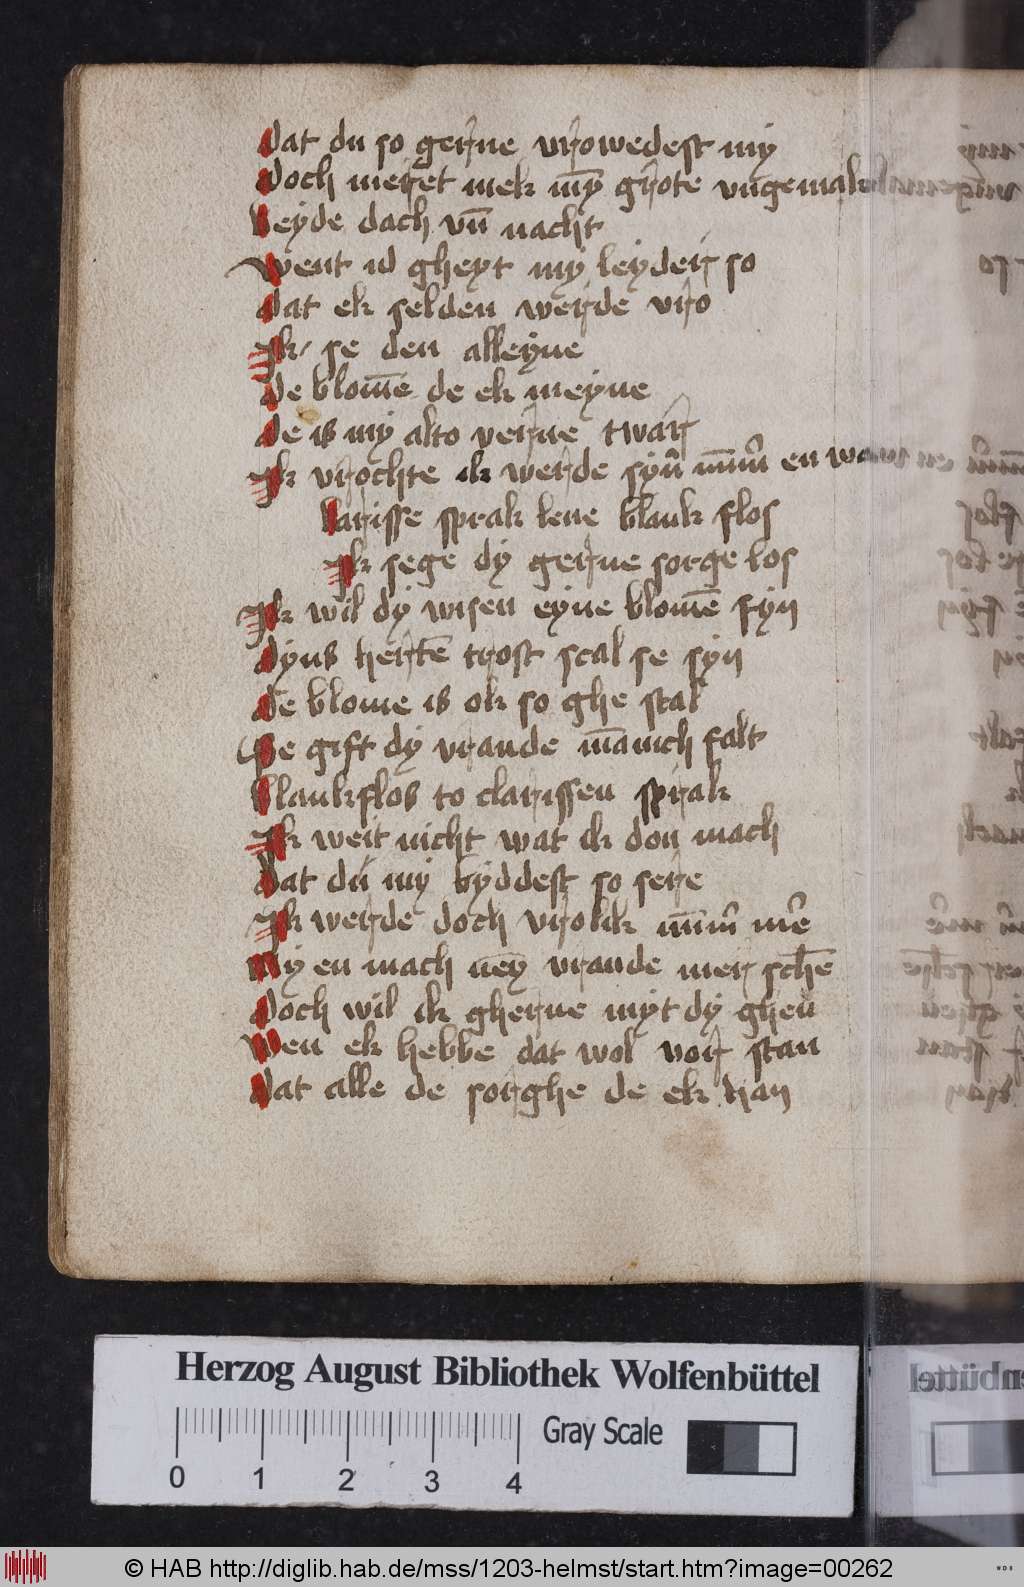 Dat du so gerne vrowedest my
Doch meret mek my̅ grote vngemak
Beyde dach vn̅ nacht
Went id gheyt my leyder so
Dat ek selden werde vro
Ik se den alleyne
De blome̅ de ek meyne
De is my alto verne twar
Ik vrochte ik werde syn̅ num̅er en war
Clarisse sprak leue blank flos
Ik sege dy gerne sorge los
Ik wil dy wisen eyne blome̅ fyn
Dyns herte̅ trost scal se syn
De blome is ok so ghe stalt
Se gift dy vrande ma̅nich falt
Blankflos to clarissen sprak
Ik weit nicht wat ik don mach
Dat du my byddest so sere
Ik werde doch vrolik num̅er mer̅
My en mach ney̅ vrande mer sche̅
Doch wil ik gherne myt dy ghen̅
Wen ek hebbe dat wol vor stan
Dat alle de sorghe de ek han
Herzog August Bibliothek Wolfenbüttel
Gray Scale
0 1 2 3 4
© HAB http://diglib.hab.de/mss/1203-helmst/start.htm?image=00262